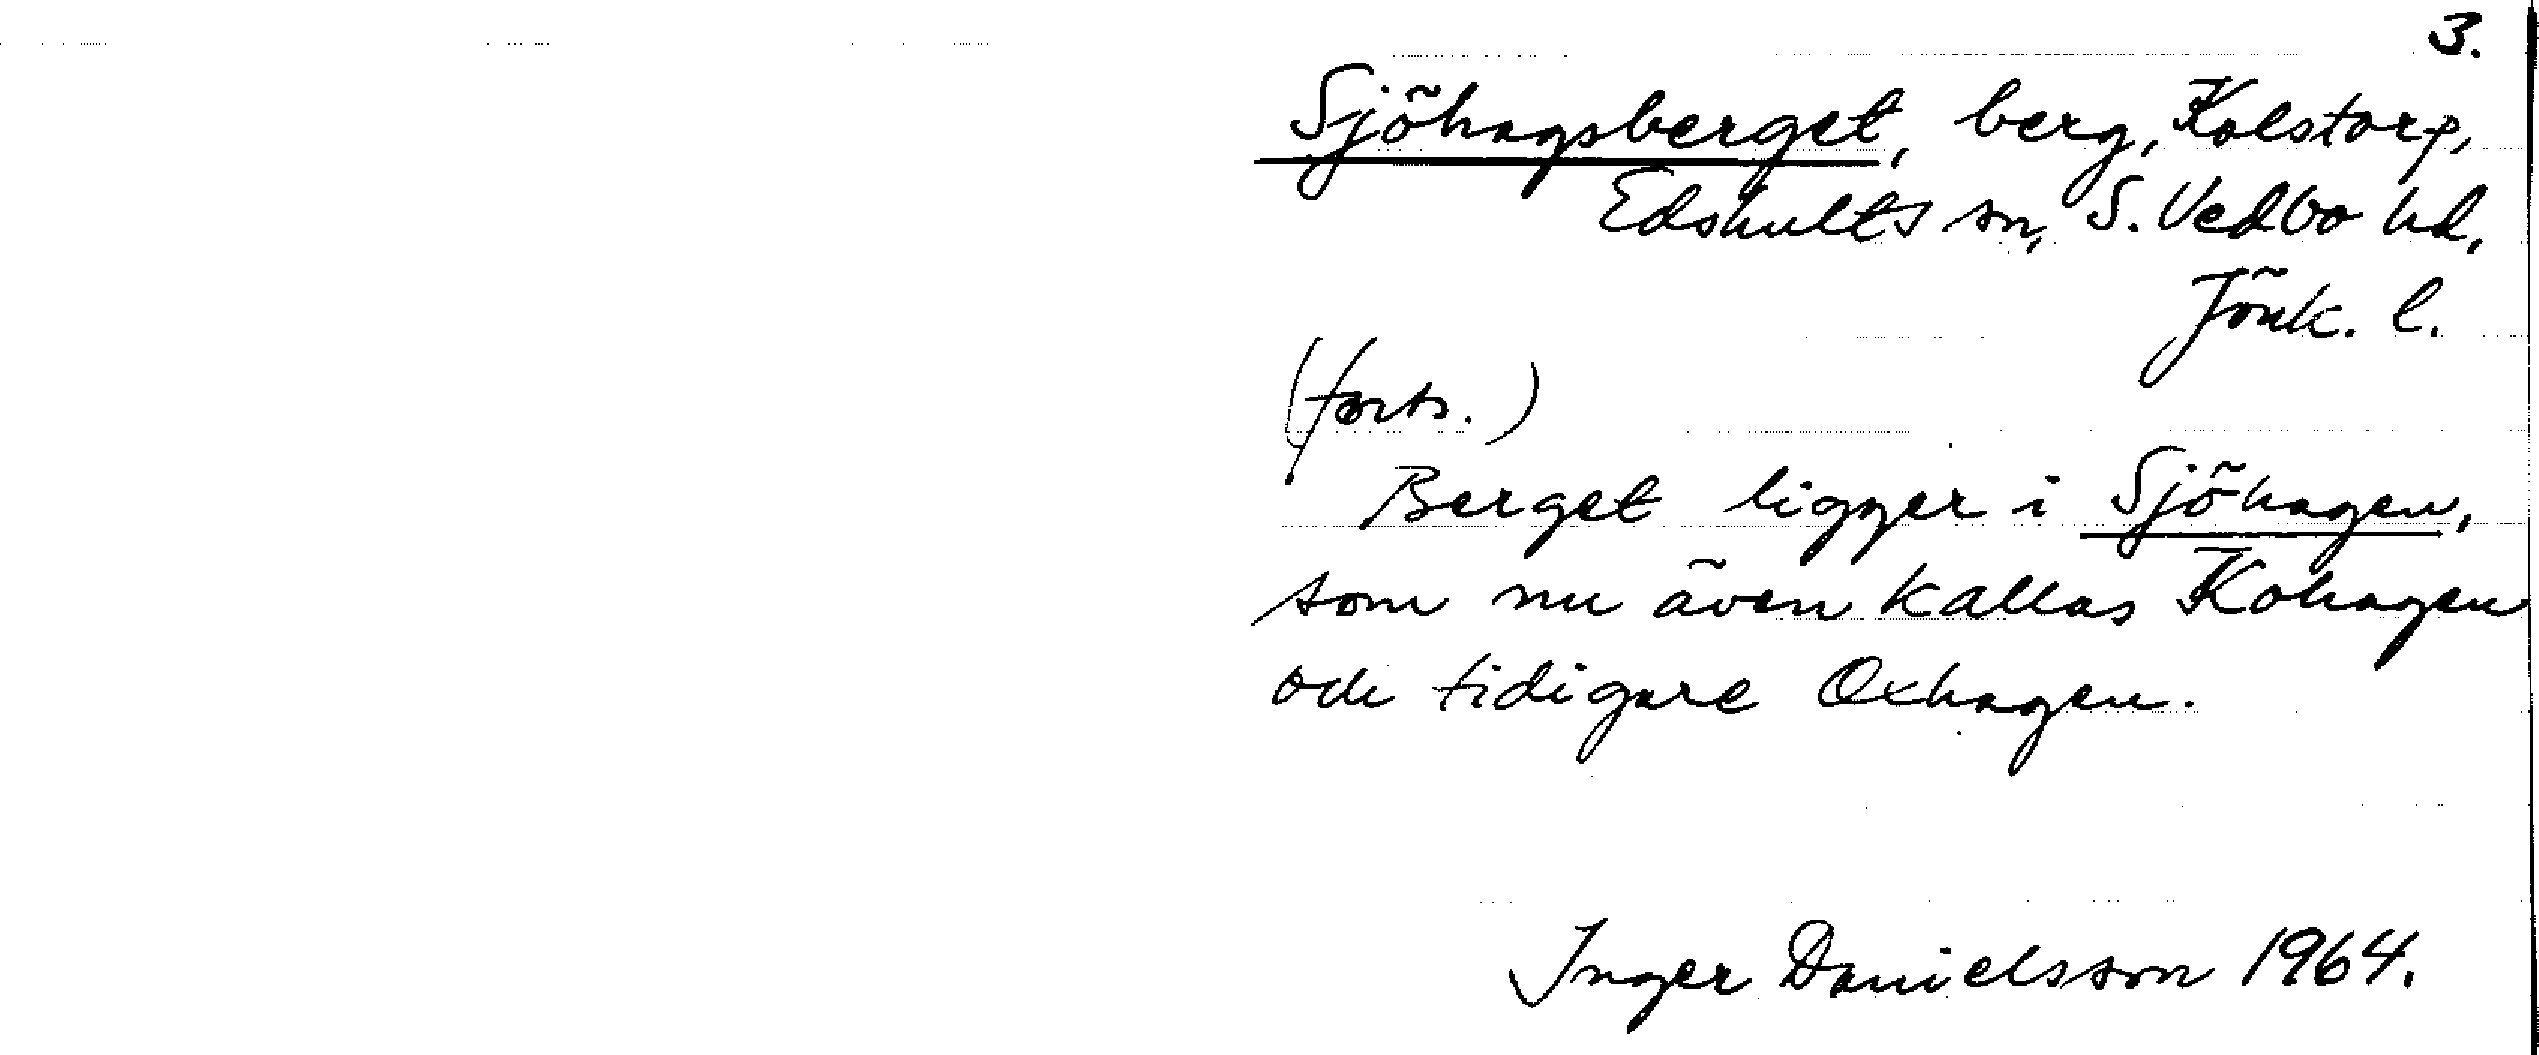 3.
Sjöhagsberget, berg, Kolstorp,
Edshults sn, S. Vedbo hd,
Jönk. l.
(forts.)
Berget ligger i Sjöhagen,
som nu även kallas Kohagen
och tidigare Oxhagen.
Inger Danielsson 1964.